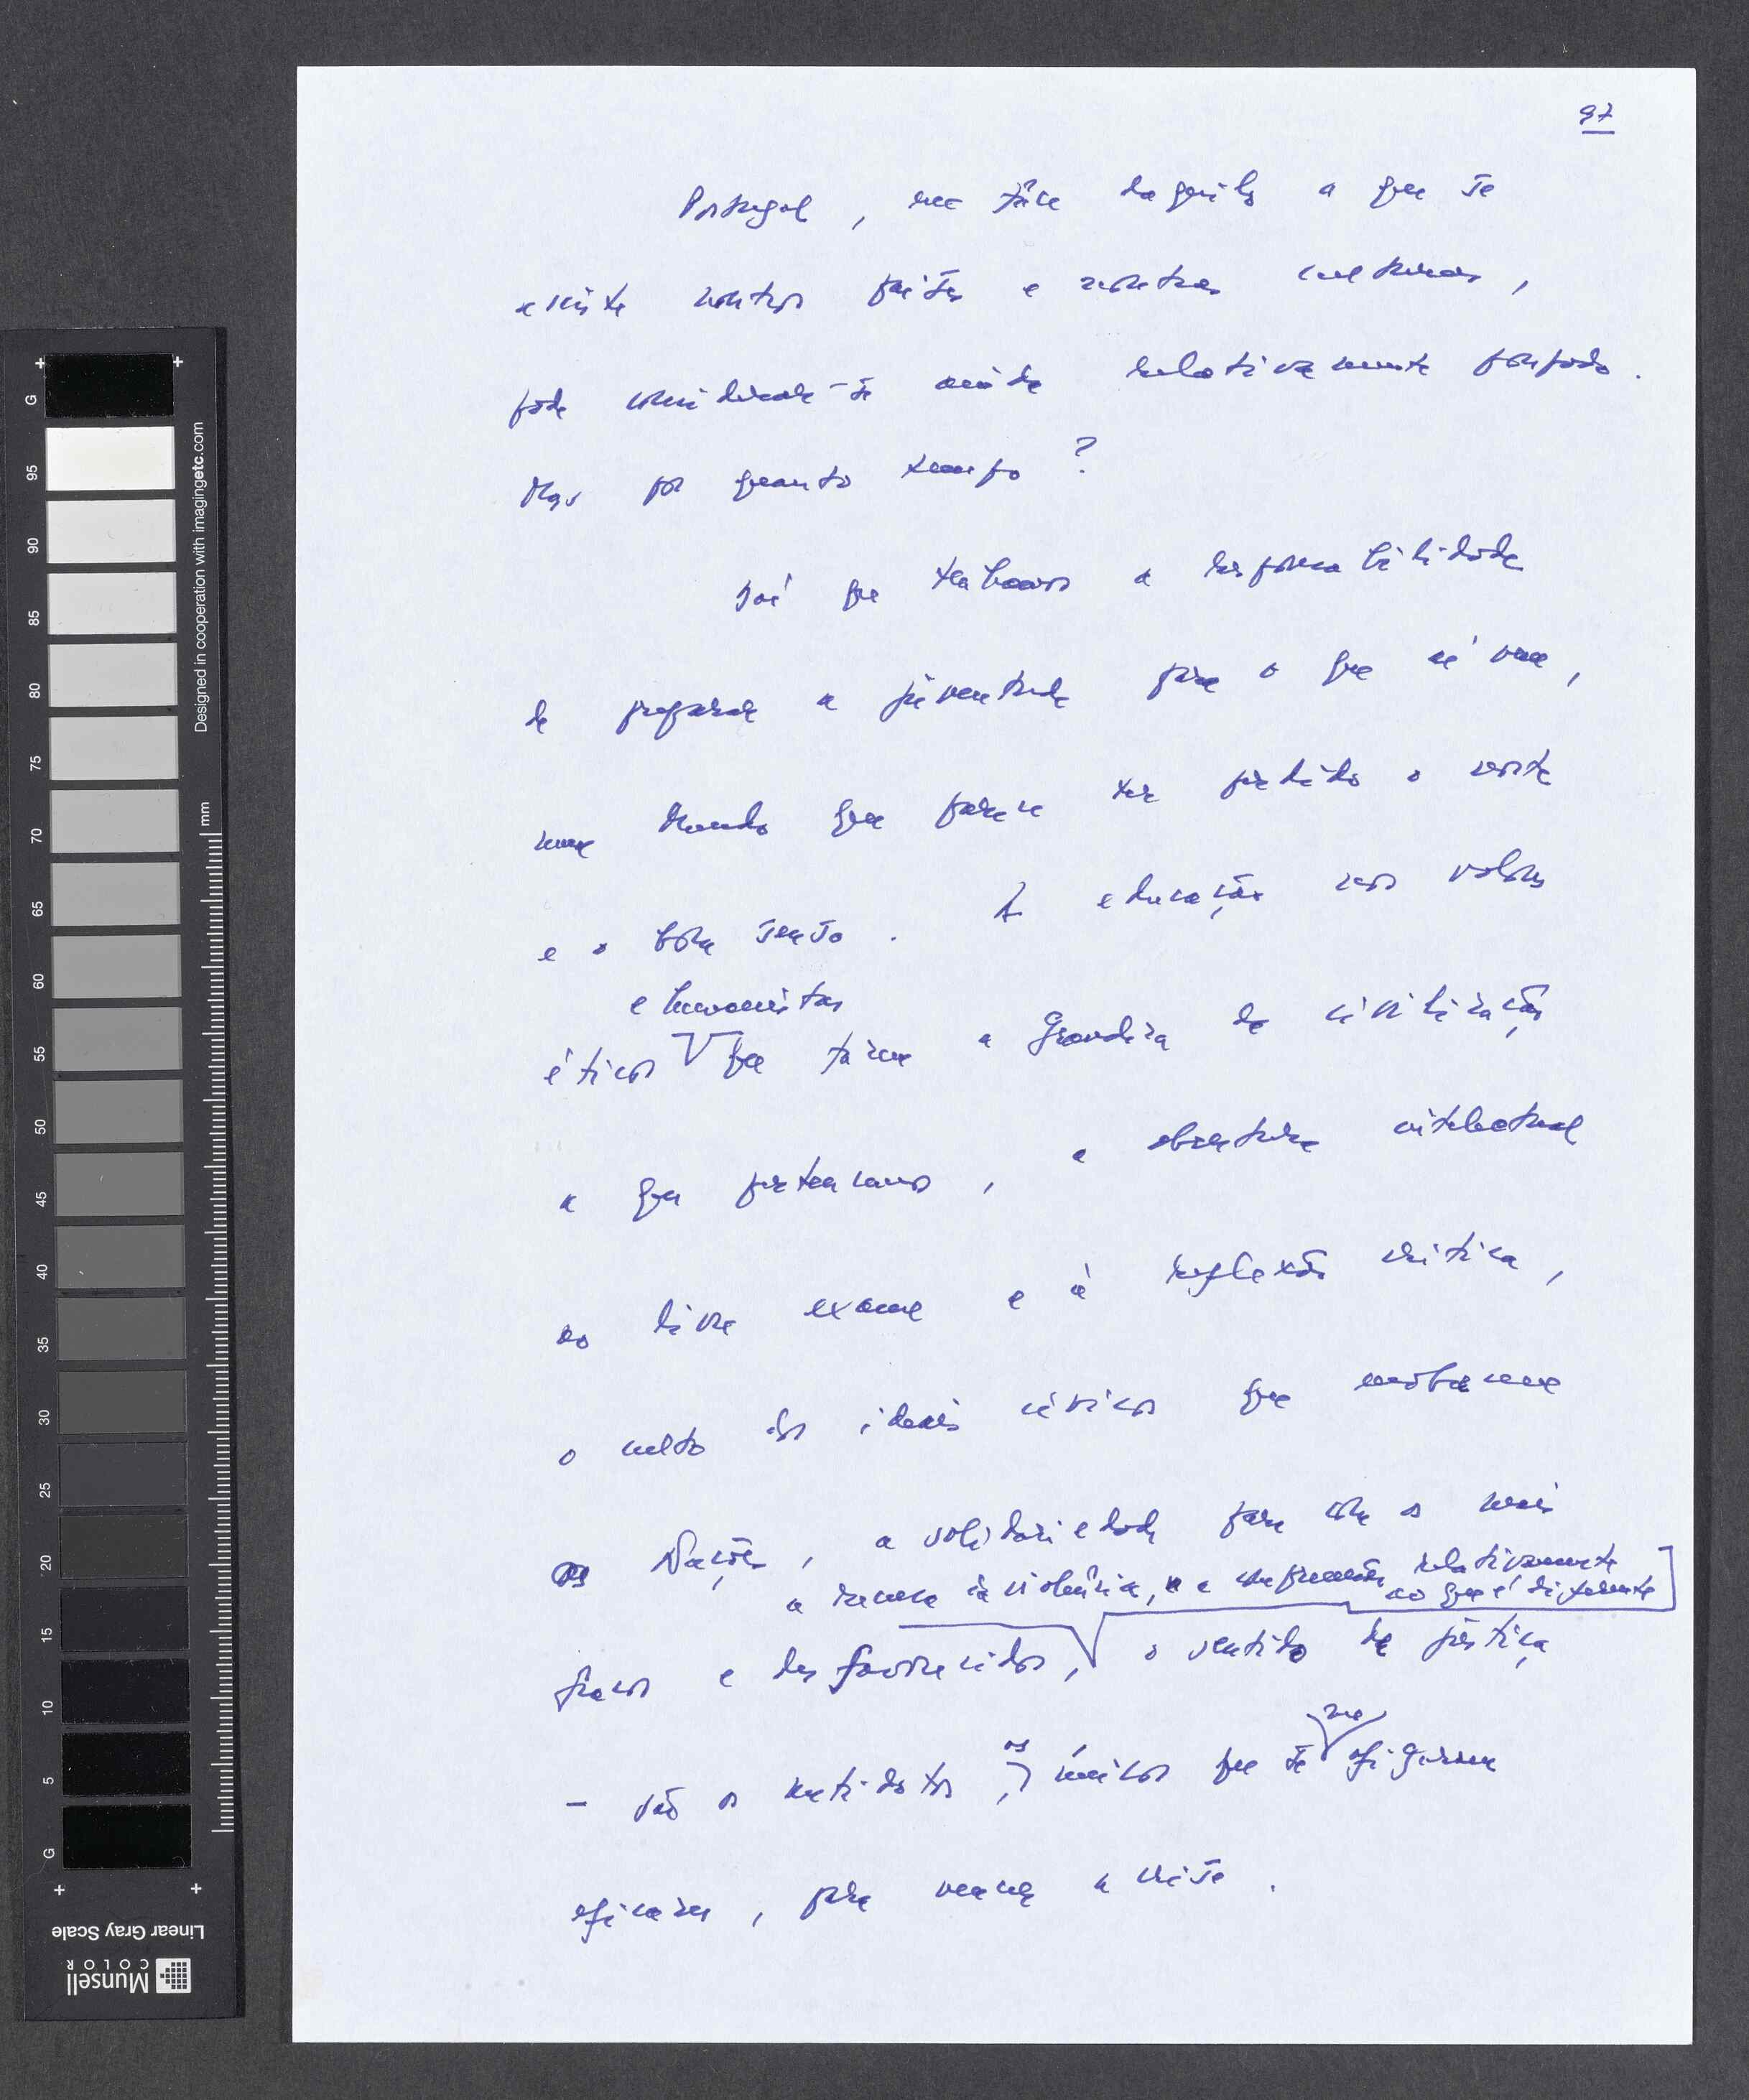 97
Portugal, em face daquilo a que se
assiste noutros países e noutras culturas,
pode considerar-se ainda relativamente poupado.
Mas por quanto tempo?
Nós que temos a responsabilidade
de preparar a juventude para o que aí vem,
num Mundo que parece ter perdido o norte
e o bom senso. A educação nos valores
e humanistas
éticos que fazem a grandeza da civilização
a que pertencemos, a abertura intelectual
ao livre exame e à reflexão crítica,
o culto dos ideais cívicos que enobrecem
as Nações, a solidariedade para com os mais
a recusa da violência, a compreensão relativamente
ao que é diferente
fracos e desfavorecidos, o sentido da justiça
os
me
- são os antídotos, únicos que se afiguram
eficazes, para vencer a crise.
G 95 90 85 80 75 70 65 60 55 50 45 40 35 30 25 20 15 10 5 G
Designed in cooperation with imagingetc.com
mm
Linear Gray Scale
Munsell
COLOR